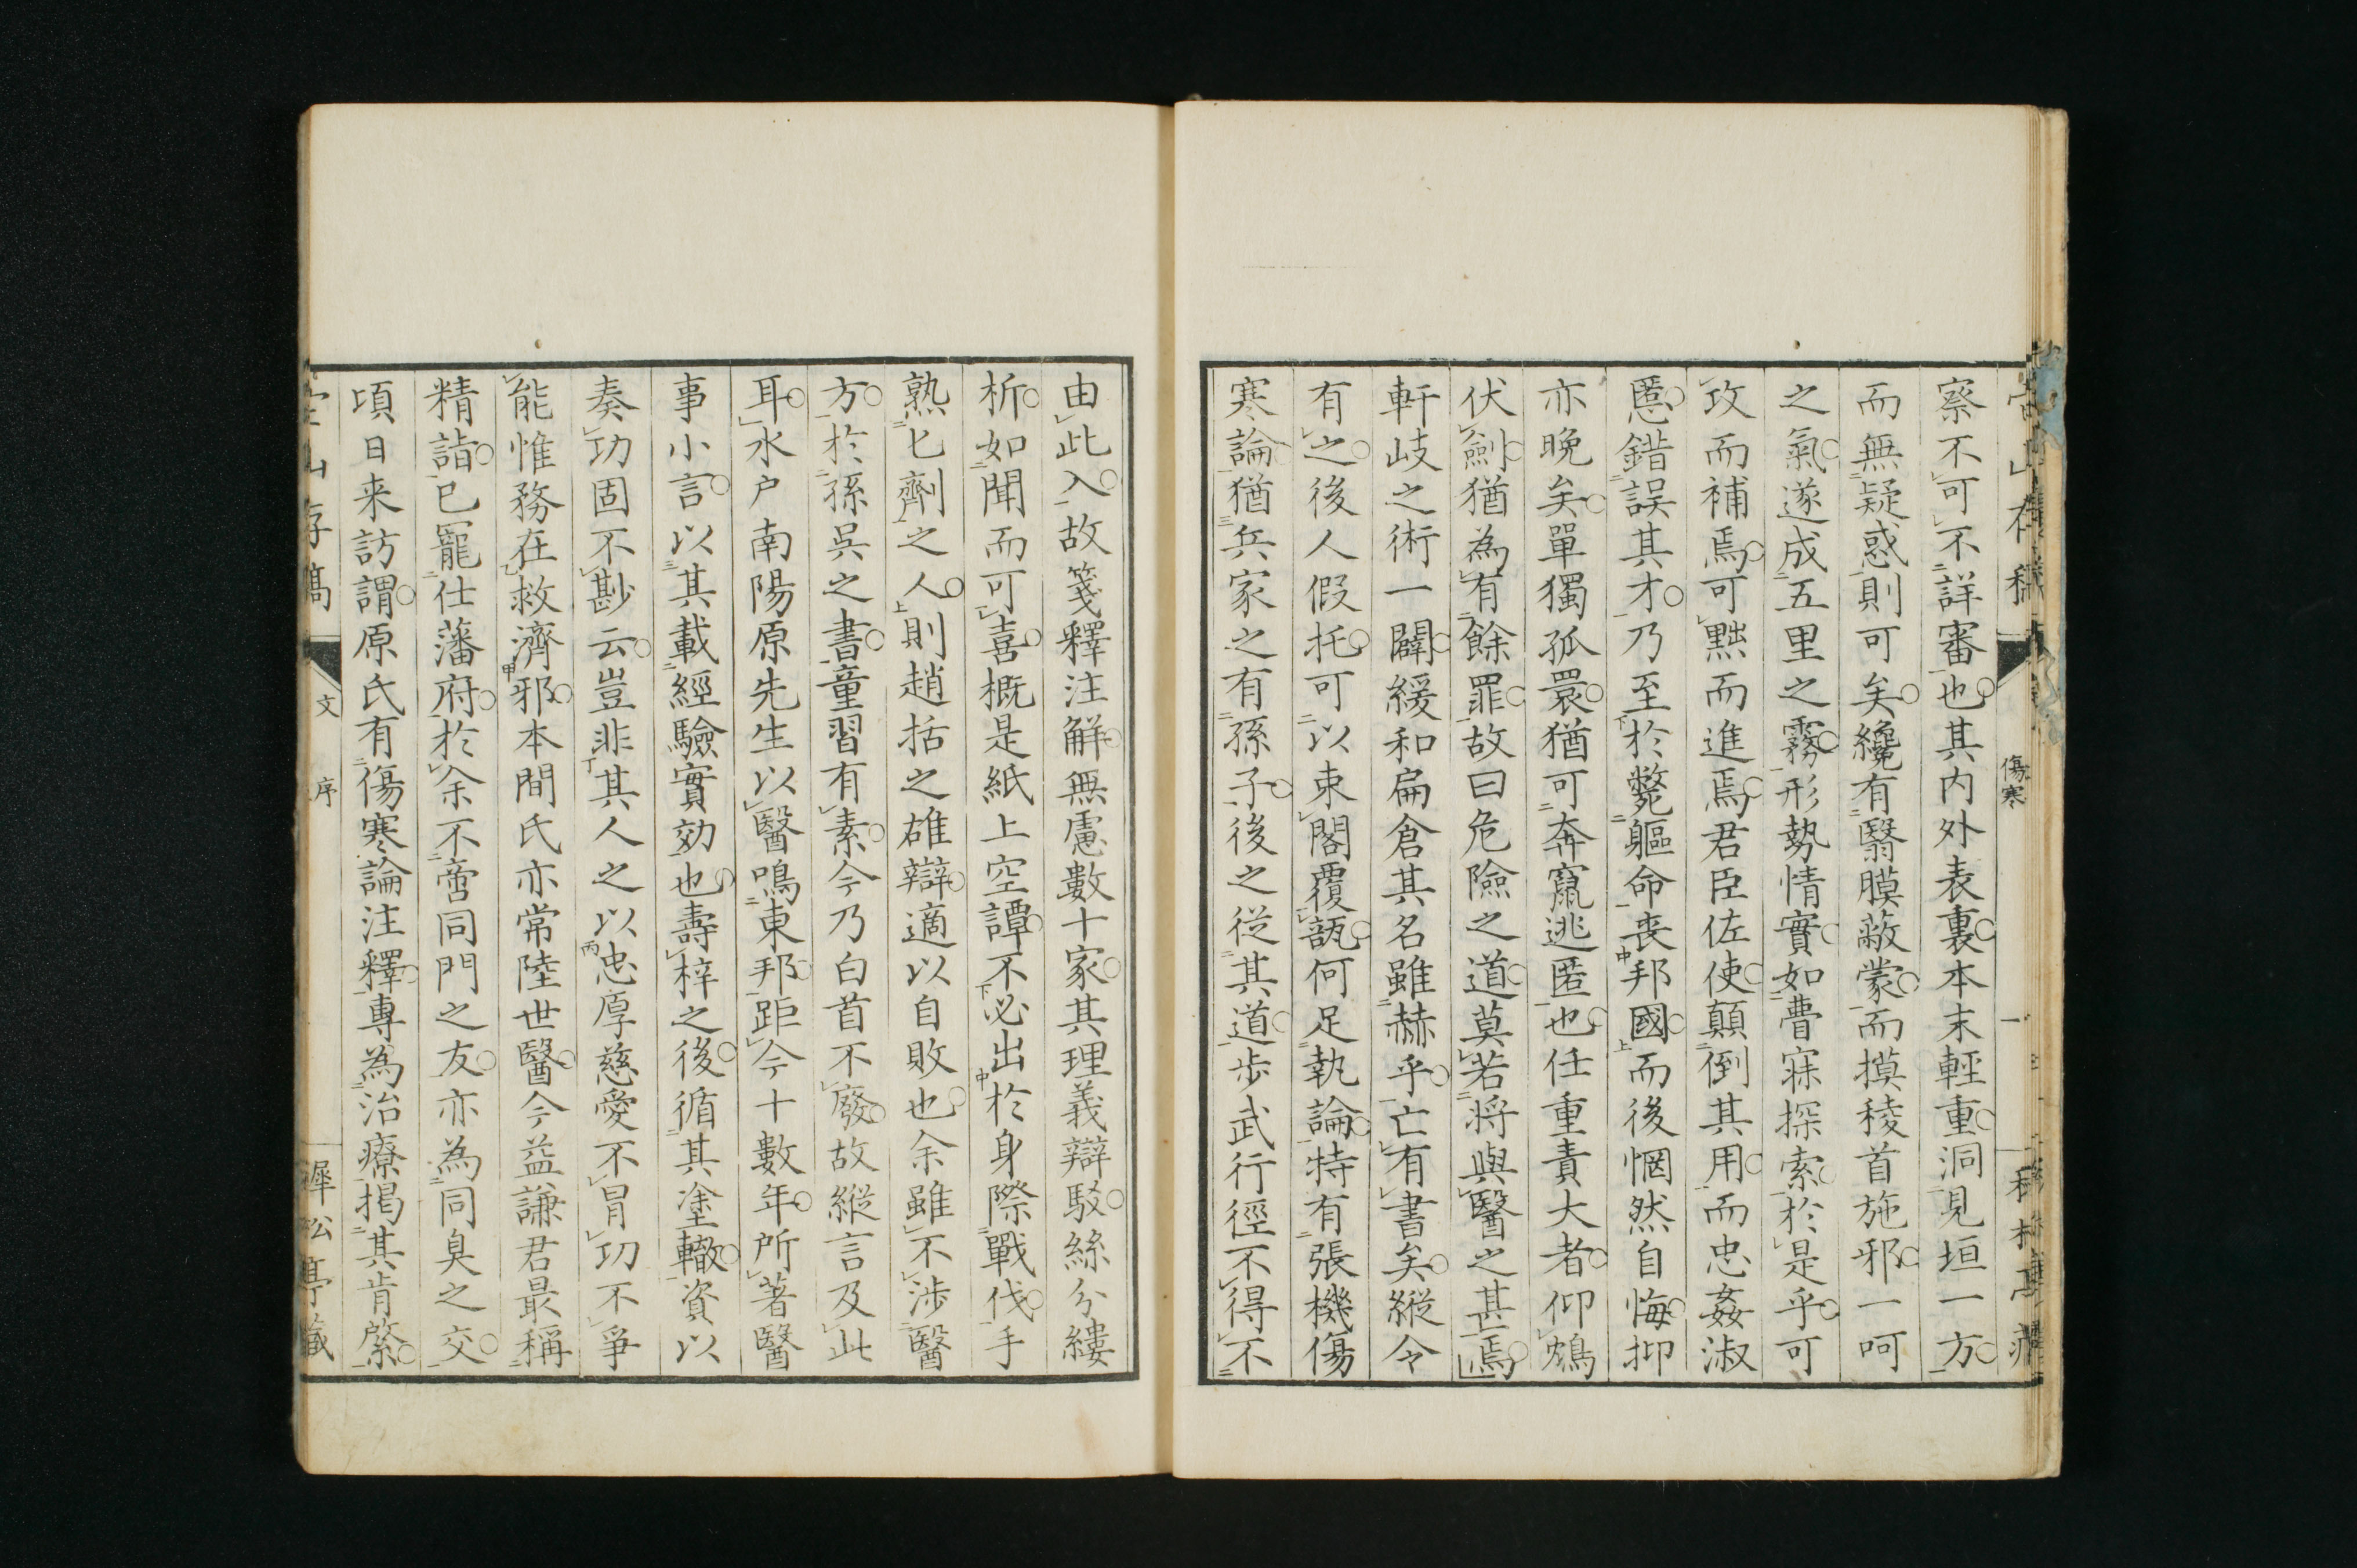 傷寒
一
察不可不詳審也其内外表裏本末輕重洞見垣一方
而無疑惑則可矣纔有翳膜蔽蒙而摸稜首施邪一呵
之氣遂成五里之霧形勢情實如瞢寐探索於是乎可
攻而補焉可黜而進焉君臣佐使顛倒其用而忠姦淑
慝錯誤其才乃至於斃軀命喪邦國而後惘然自悔抑
亦晩矣單獨孤睘猶可奔竄逃匿也任重責大者仰鴆
伏劍猶為有餘罪故曰危險之道莫若將與醫之甚焉
軒歧之術一闢緩和扁倉其名雖赫乎亡有書矣縱令
有之後人假托可以束閣覆瓿何足執論特有張機傷
寒論猶兵家之有孫子後之從其道步武行徑不得不
由此入故箋釋注解無慮數十家其理義辯駁絲分縷
析如聞而可喜概是紙上空譚不必出於身際戰伐手
熟匕劑之人則趙括之雄辯適以自敗也余雖不涉醫
方於孫呉之書童習有素今乃白首不廢故縱言及此
耳水戸南陽原先生以醫鳴東邦距今十數年所著醫
事小言以其載經驗實効也壽梓之後循其塗轍資以
奏功固不尠云豈非其人之以忠厚慈愛不冒功不爭
能惟務在救濟邪本間氏亦常陸世醫今益謙君最稱
精詣已寵仕藩府於余不啻同門之友亦為同臭之交
頃日来訪謂原氏有傷寒論注釋專為治療掲其肯綮
文 序